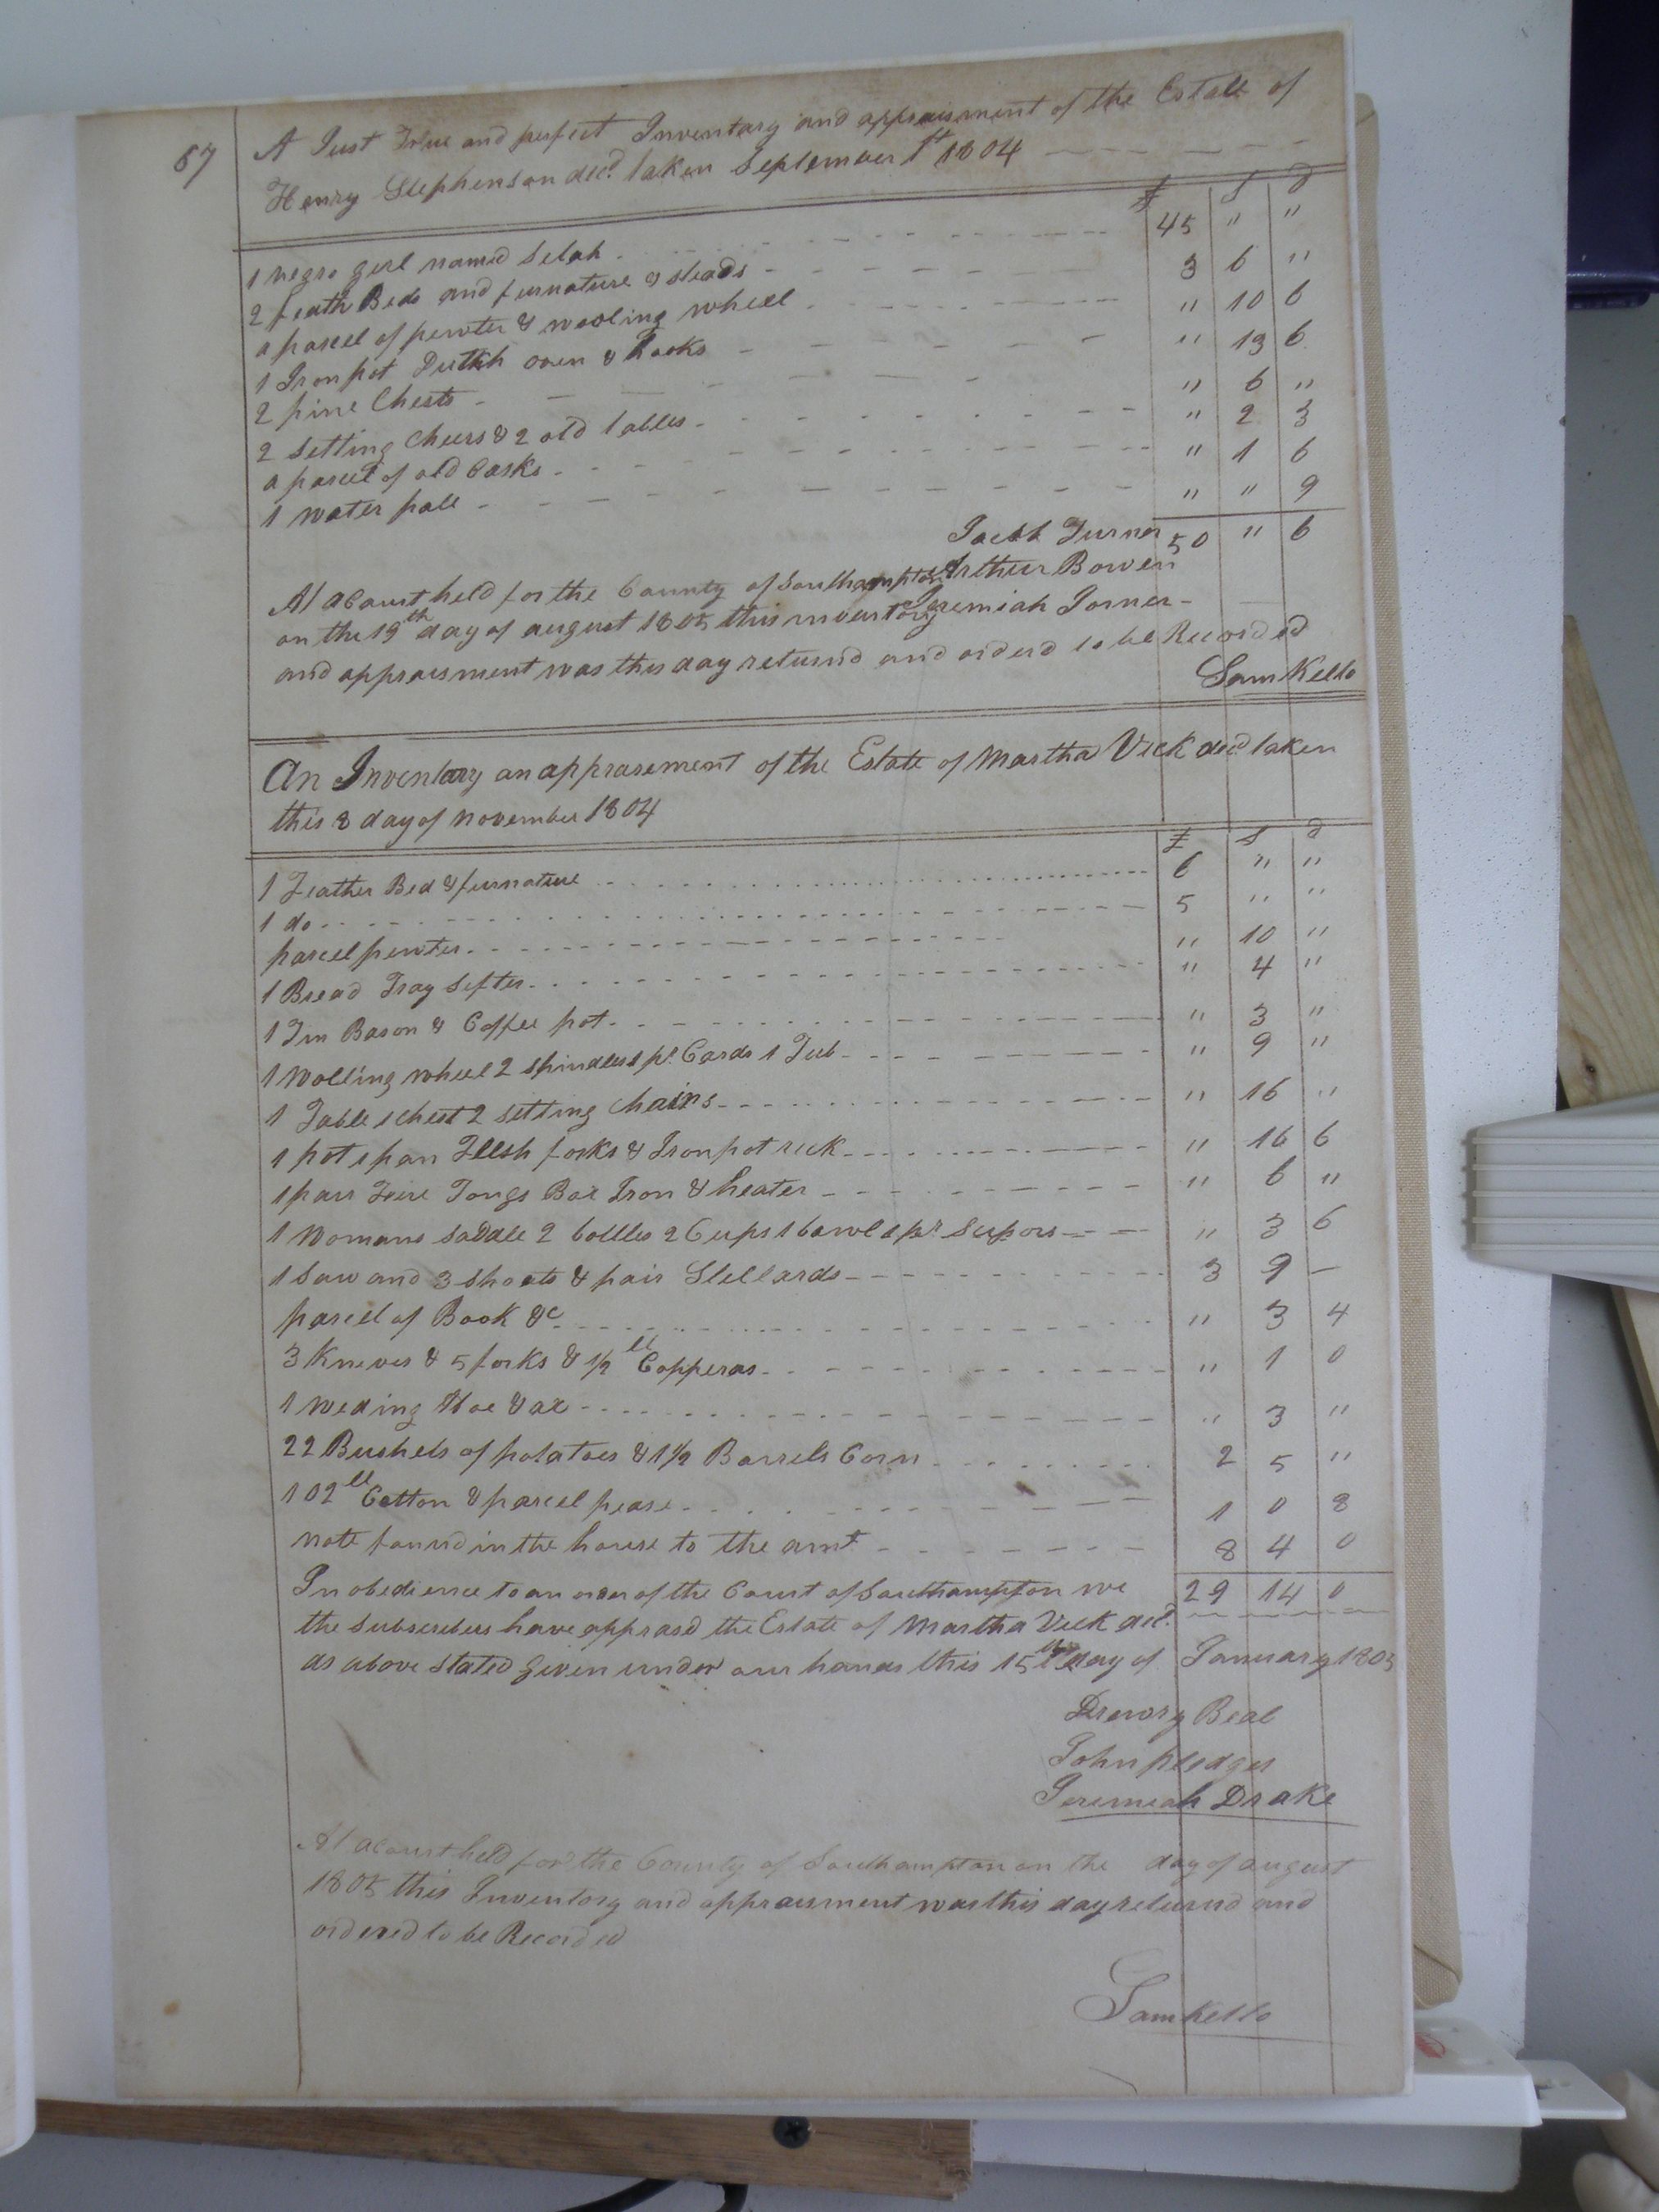 67
A Just True and perfect Inventary and appraisment of the Estate of
Henry Stephenson decd. taken September 1st 1804
£ S d
1 negro girl named Selah 45 " "
2 feathr Beds and furnature & steads 3 6 "
a parcel of pewter & wooling wheel " 10 6
1 Iron pot Dutch oven & hooks " 13 6
2 pine Chests " 6 "
2 setting Cheers & 2 old tables " 2 3
a parcel of old Casks " 1 6
1 water pale " " 9
Jacob Turner 50 " 6
Arthur Bowen
At a Court held for the County of Southampton
Jeremiah Jorner
on the 19th day of august 1805 this inventory
and appraisment was this day returnd and orderd to be Recorded
Sam Kello
An Inventory an apprasement of the Estate of Martha Vick decd taken
this 8 day of november 1804
£ S d
1 Feather Bed & furnature 6 " "
1 do 5 " "
parcel pewter " 10 "
1 Bread Tray Sifter " 4 "
1 Tin Bason & Coffee pot " 3 "
1 Wolling wheel 2 spindles 1 pr. Cards 1 Tub " 9 "
1 Table 1 chest 2 setting chairs " 16 "
1 pot 1 pan Flesh forks & Iron pot rick " 16 6
1 pair Feire Tongs Box Iron & heater " 6 "
1 Womans saddle 2 bottles 2 Cups 1 bowl 1 pr. Scipors " 3 6
1 Sow and 3 shoats & pair Stellards 3 9 —
parcel of Book &c " 3 4
3 Knives & 5 forks & 1/2 ll Copperas " 1 0
1 weding Hoe & ax " 3 "
22 Bushels of potatoes & 1 1/2 Barrels Corn 2 5 "
102 ll Cotton & parcel pease 1 0 8
note found in the house to the amt 8 4 0
In obedience to an order of the Court of Southampton we 29 14 0
the subscribers have apprasd the Estate of Martha Vick decd.
as above stated given under our hands this 15th day of January 1805
Drewry Beal
John pledger
Jeremiah Drake
At a Court held for the County of Southampton on the day of august
1805 this Inventory and appraisment was this day returnd and
ordered to be Recorded
Sam Kello